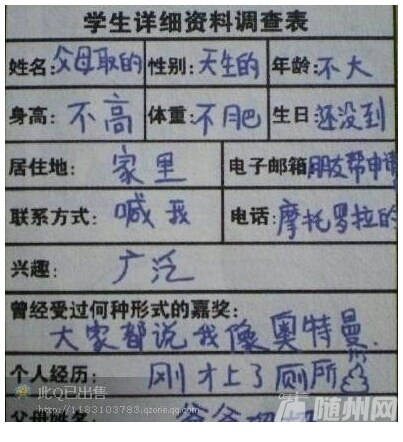 学生详细资料调查表
姓名:父母取的 性别:天生的 年龄:不大
身高:不高 体重:不肥 生日:还没到
居住地:家里 电子邮箱:朋友帮申请
联系方式:喊我 电话:摩托罗拉的
兴趣:广泛
曾经受过何种形式的嘉奖:
大家都说我像奥特曼.
个人经历:刚才上了厕所
此Q已出售
http://1183103783.qzone.qq.com
随州网
父母姓名:爷爷